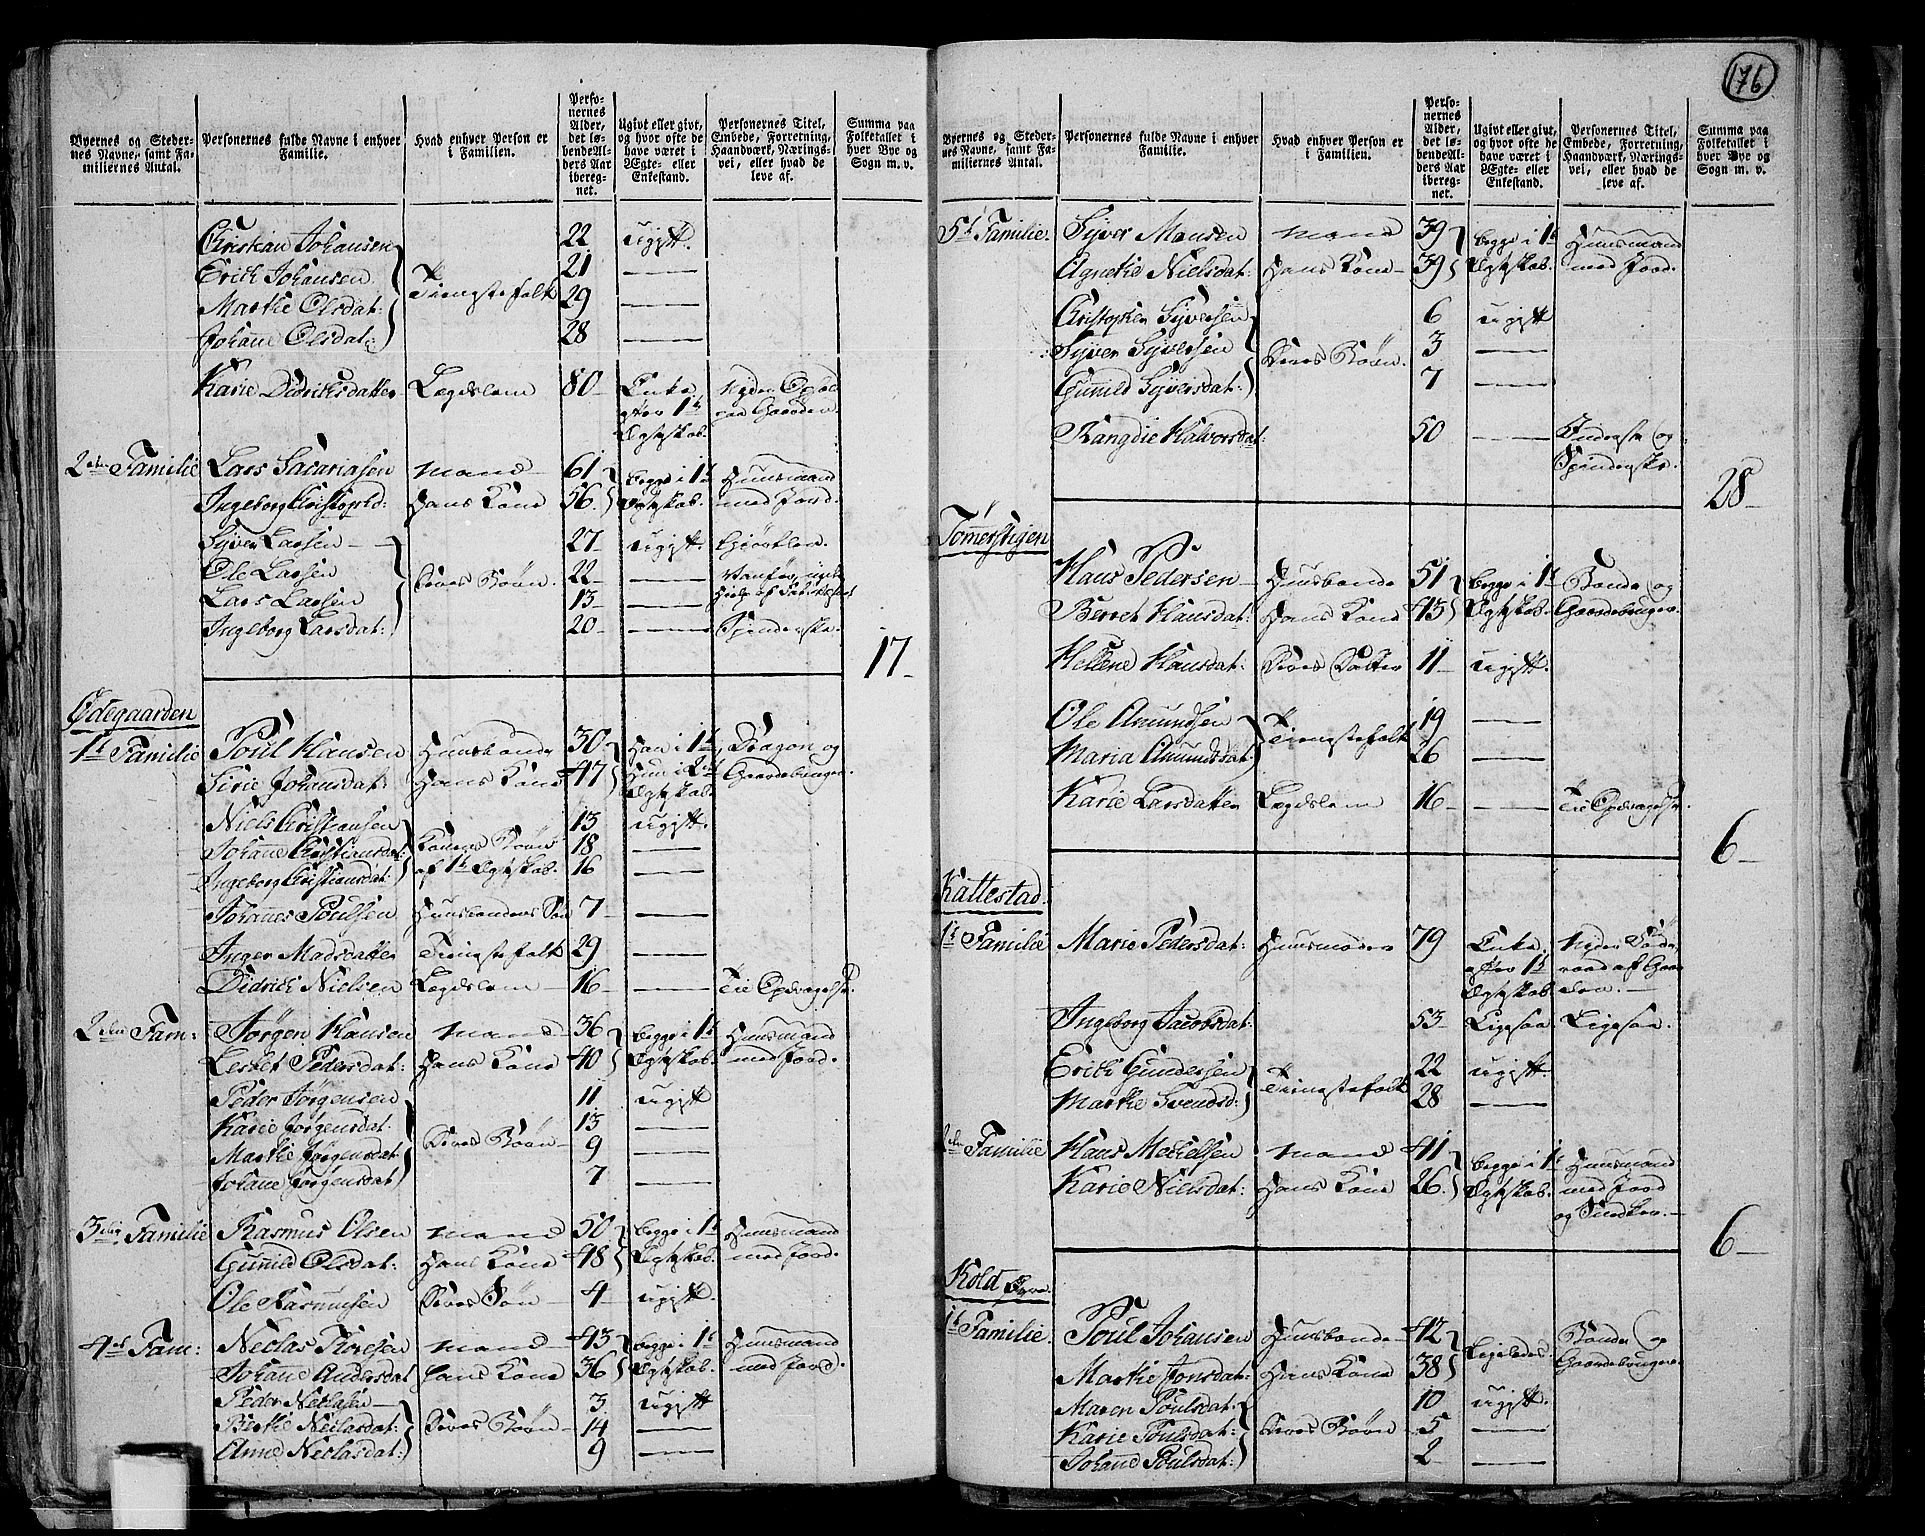 176
Byernes og Steder-
nes Navne, samt Fa-
miliernes Antal.
Personernes fulde Navne i enhver
Familie.
Hvad enhver Person er
i Familien.
Perso-
nernes
Alder,
det lø-
bende Al-
ders Aar
ibereg-
net.
Ugivt eller givt,
og hvor ofte de
have været i
Ægte- eller
Enkestand.
Personernes Titel,
Embede, Forretning,
Haandværk, Nærings-
vei, eller hvad de
leve af.
Summa paa
Folketallet i
hver Bye og
Sogn m. v.
Christian Johansen 22 ugivt.
Erich Johansen 21 —
Tienestefolk
Marthe Olsdat: 29 —
Johanne Olsdat: 28 —
Karie Didrichsdatter Lægdslem 80 Enke
efter 1te
Ægteskab.
2den Familie Lars Sacariasen Mand 61 begge i 1te Huusmand
Ingeborg Christophd: Hans Kone 56 Ægteskab. med Jord.
Syver Larsen 27 ugivt.
Ole Larsen 22 —
Deres Børn.
Lars Larsen 13 —
Ingeborg Larsdat: 20 — Spinderske.
17
Ødegaarden
1te Familie Poul Hansen Huusbonde 30 Han i 1te Dragon og
Sirie Johansdat: Hans Kone 47 Hun i 2det Gaardebruger
Ægteskab.
Niels Christiansen 13 ugivt.
Johanne Christiansdat: Konens Børn 18 —
Ingeborg Christiansdat: af 1te Ægteskab. 16
Johannes Poulsen Huusbondens Søn 7 —
Inger Madsdatter Tienestefolk 29 —
Didrich Nielsen Lægdslem 16 — Til Opdragelse.
2den Fam: Jørgen Hansen Mand 36 begge i 1te Huusmand
Lesbet Pedersdat: Hans Kone 40 Ægteskab. med Jord.
Peder Jørgensen 11 ugivt
Karie Jørgensdat: 13 —
Deres Børn
Marthe Jørgensdat: 9 —
Johane Jørgensdat 7 —
3die Familie Rasmus Olsen Mand 50 begge i 1te Huusmand
Gunild Olsdat: Hans Kone 48 Ægteskab med Jord.
Ole Rasmusen Deres Søn 4 ugivt.
4de Fam: Neclas Thoresen Mand 43 begge i 1te Huusmand
Johanne Andersdat Hans Kone 36 Ægteskab. med Jord.
Peder Neclasen 3 ugivt
Berthe Neclasdat: Deres Børn 14 —
Anne Neclasdat: 9 —
Byernes og Steder-
nes Navne, samt Fa-
miliernes Antal.
Personernes fulde Navne i enhver
Familie.
Hvad enhver Person er
i Familien.
Perso-
nernes
Alder,
det lø-
bende Al-
ders Aar
ibereg-
net.
Ugivt eller givt,
og hvor ofte de
have været i
Ægte- eller
Enkestand.
Personernes Titel,
Embede, Forretning,
Haandværk, Nærings-
vei, eller hvad de
leve af.
Summa paa
Folketallet i
hver Bye og
Sogn m. v.
5te Familie. Syver Monsen Mand 39 begge i 1te Huusmand
Agnethe Nielsdat: Hans Kone 39 Ægteskab. med Jord.
Christopher Syversen 6 ugivt
Syver Syversen 3 —
Deres Børn.
Gunild Syversdat: 7 —
Rangdie Halvorsdat: 50 — Inderste og
Spinderske.
28
Tømerstigen
Hans Pedersen Huusbonde 51 begge i 1te Bonde og
Berret Hansdat: Hans Kone 45 Ægteskab. Gaardebruger.
Hellene Hansdat: Deres Datter 11 ugivt.
Ole Amundsen 19 —
Tienestefolk
Maria Amundsdat: 26 —
Karie Larsdatter Lægdslem 16 — Til Opdragelse.
6
Kattestad.
1te Familie Marie Pedersdat: Huusmoder 79 Enke
efter 1te
Ægteskab
Ingeborg Jacobsdat: 53 Ligesaa Ligesaa.
Erich Gundersen 22 ugivt.
Tienestefolk
Marthe Svendsd: 28 —
2den Familie Hans Mechelsen Mand 41 begge i 1te Huusmand
Karie Nielsdat: Hans Kone 26 Ægteskab. med Jord
6
Kold
1te Familie. Poul Johansen Huusbonde 42 Ligeledes. Bonde og
Marthe Jonsdat: Hans Kone 38 Gaardebruger
Maren Poulsdat. 10 ugivt.
Karie Poulsdat: Deres Børn 5 —
Johane Poulsdat: 2 —